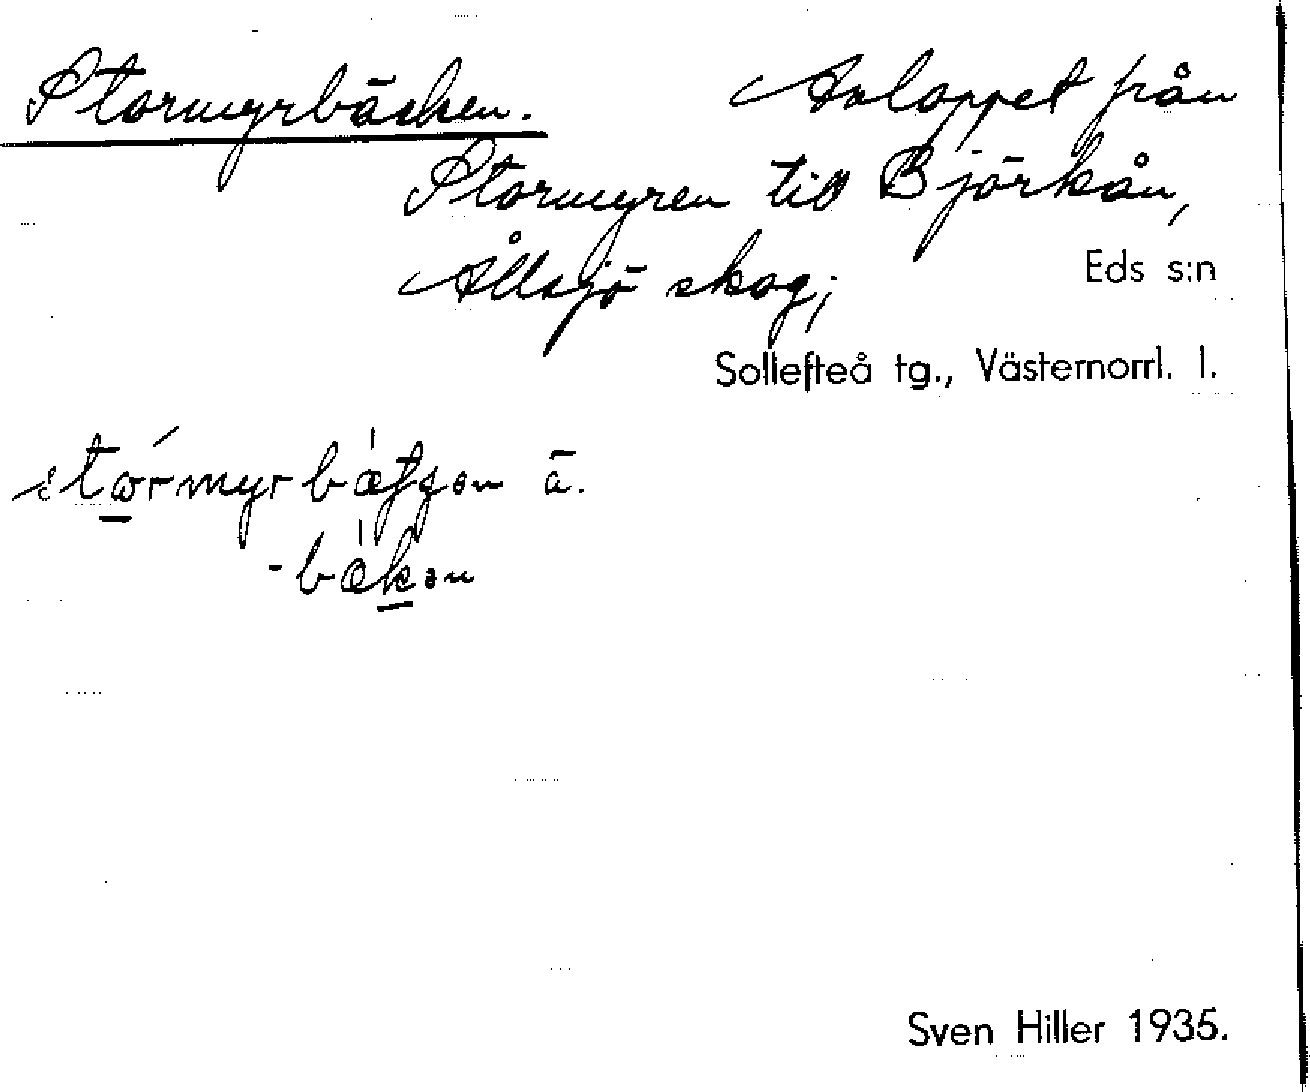 Stormyrbäcken. Avloppet från
Stormyren till Björkån,
Ållsjö skog; Eds s:n
Sollefteå tg., Västernorrl. l.
ā.
Sven Hiller 1935.